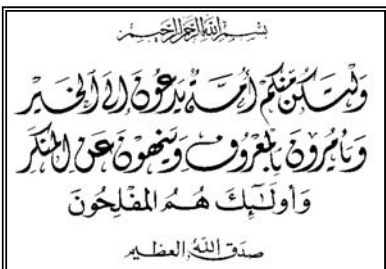 بِسْمِ اللَّهِ الرَّحْمَٰنِ الرَّحِيمِ
وَلْتَكُن مِّنكُمْ أُمَّةٌ يَدْعُونَ إِلَى الْخَيْرِ
وَيَأْمُرُونَ بِالْمَعْرُوفِ وَيَنْهَوْنَ عَنِ الْمُنكَرِ
وَأُولَٰئِكَ هُمُ الْمُفْلِحُونَ
صدق الله العظيم